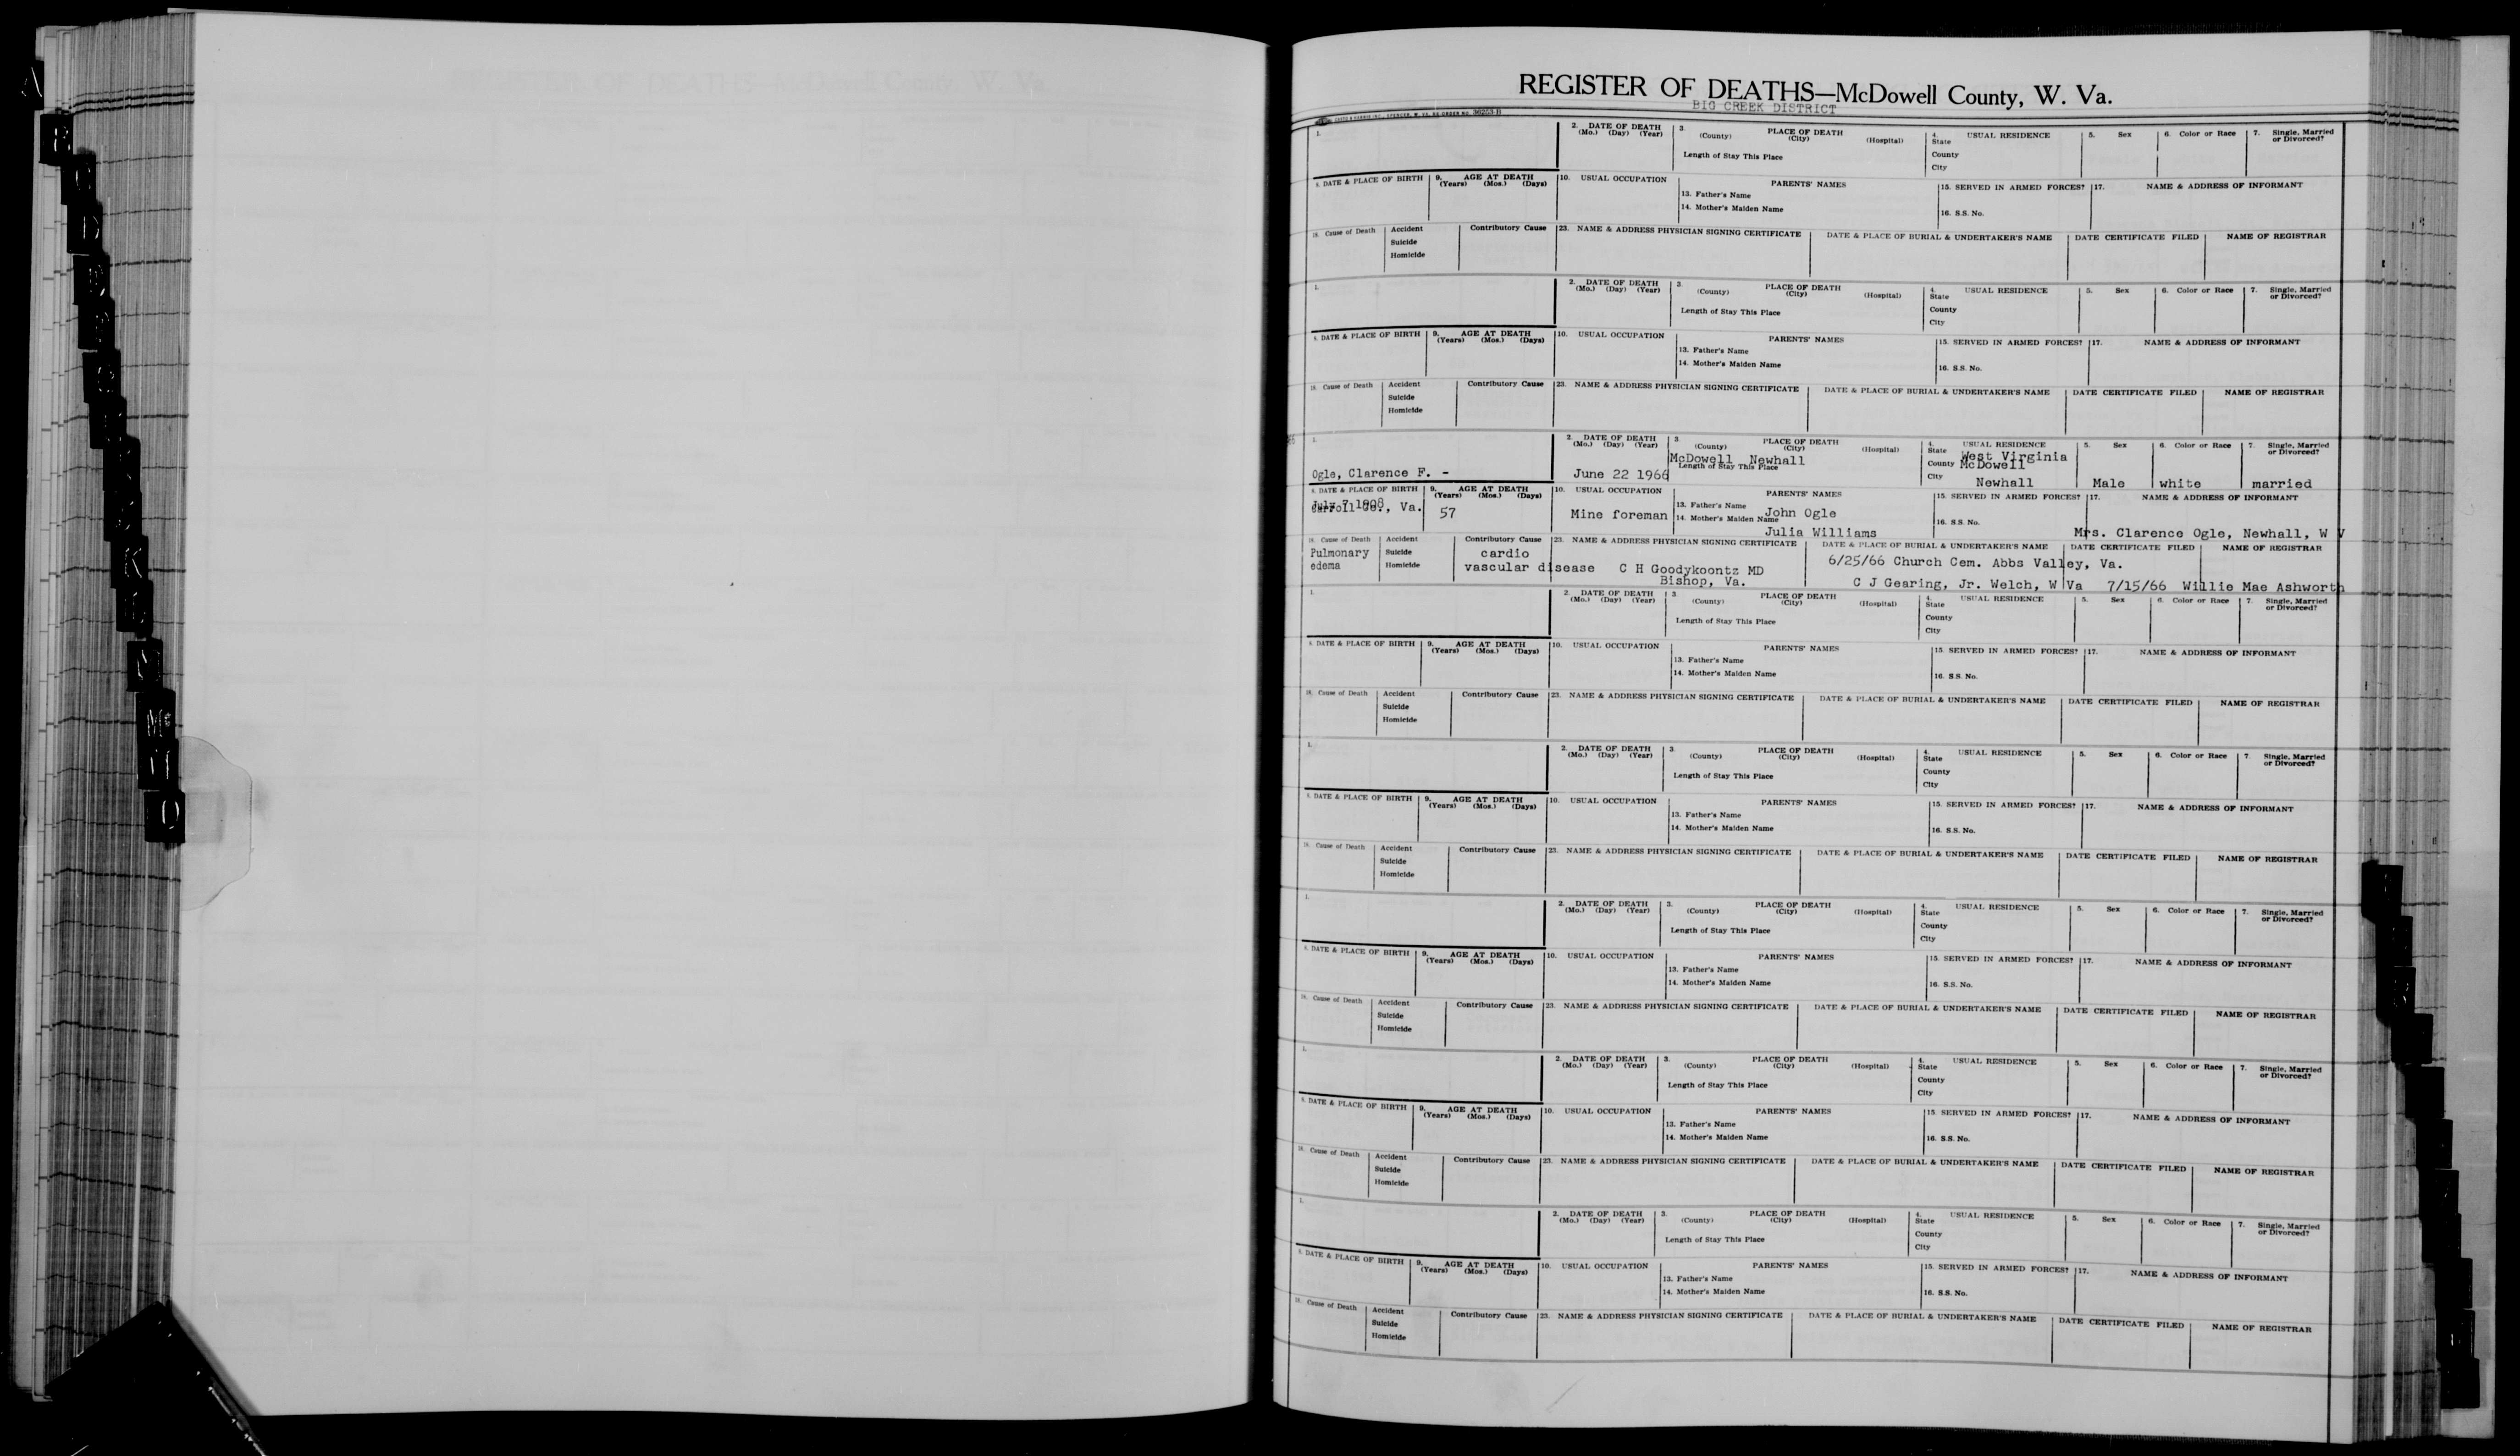 REGISTER OF DEATHS—McDowell County, W. Va.
BIG CREEK DISTRICT
1. 2. DATE OF DEATH (Mo.) (Day) (Year) 3. PLACE OF DEATH (County) (City) (Hospital) Length of Stay This Place 4. USUAL RESIDENCE State County City 5. Sex 6. Color or Race 7. Single, Married or Divorced?
8. DATE & PLACE OF BIRTH 9. AGE AT DEATH (Years) (Mos.) (Days) 10. USUAL OCCUPATION PARENTS' NAMES 13. Father's Name 14. Mother's Maiden Name 15. SERVED IN ARMED FORCES? 16. S.S. No. 17. NAME & ADDRESS OF INFORMANT
18. Cause of Death Accident Suicide Homicide Contributory Cause 23. NAME & ADDRESS PHYSICIAN SIGNING CERTIFICATE DATE & PLACE OF BURIAL & UNDERTAKER'S NAME DATE CERTIFICATE FILED NAME OF REGISTRAR
1. 2. DATE OF DEATH (Mo.) (Day) (Year) 3. PLACE OF DEATH (County) (City) (Hospital) Length of Stay This Place 4. USUAL RESIDENCE State County City 5. Sex 6. Color or Race 7. Single, Married or Divorced?
8. DATE & PLACE OF BIRTH 9. AGE AT DEATH (Years) (Mos.) (Days) 10. USUAL OCCUPATION PARENTS' NAMES 13. Father's Name 14. Mother's Maiden Name 15. SERVED IN ARMED FORCES? 16. S.S. No. 17. NAME & ADDRESS OF INFORMANT
18. Cause of Death Accident Suicide Homicide Contributory Cause 23. NAME & ADDRESS PHYSICIAN SIGNING CERTIFICATE DATE & PLACE OF BURIAL & UNDERTAKER'S NAME DATE CERTIFICATE FILED NAME OF REGISTRAR
1. Ogle, Clarence F. - 2. DATE OF DEATH (Mo.) (Day) (Year) June 22 1966 3. PLACE OF DEATH (County) (City) (Hospital) McDowell Newhall Length of Stay This Place 4. USUAL RESIDENCE State West Virginia County McDowell City Newhall 5. Sex Male 6. Color or Race white 7. Single, Married or Divorced? married
8. DATE & PLACE OF BIRTH July 7 1908 Carroll Co., Va. 9. AGE AT DEATH (Years) (Mos.) (Days) 57 10. USUAL OCCUPATION Mine foreman PARENTS' NAMES 13. Father's Name John Ogle 14. Mother's Maiden Name Julia Williams 15. SERVED IN ARMED FORCES? 16. S.S. No. 17. NAME & ADDRESS OF INFORMANT Mrs. Clarence Ogle, Newhall, W V
18. Cause of Death Pulmonary edema Accident Suicide Homicide Contributory Cause cardio vascular disease 23. NAME & ADDRESS PHYSICIAN SIGNING CERTIFICATE C H Goodykoontz MD Bishop, Va. DATE & PLACE OF BURIAL & UNDERTAKER'S NAME 6/25/66 Church Cem. Abbs Valley, Va. C J Gearing, Jr. Welch, W Va DATE CERTIFICATE FILED 7/15/66 NAME OF REGISTRAR Willie Mae Ashworth
1. 2. DATE OF DEATH (Mo.) (Day) (Year) 3. PLACE OF DEATH (County) (City) (Hospital) Length of Stay This Place 4. USUAL RESIDENCE State County City 5. Sex 6. Color or Race 7. Single, Married or Divorced?
8. DATE & PLACE OF BIRTH 9. AGE AT DEATH (Years) (Mos.) (Days) 10. USUAL OCCUPATION PARENTS' NAMES 13. Father's Name 14. Mother's Maiden Name 15. SERVED IN ARMED FORCES? 16. S.S. No. 17. NAME & ADDRESS OF INFORMANT
18. Cause of Death Accident Suicide Homicide Contributory Cause 23. NAME & ADDRESS PHYSICIAN SIGNING CERTIFICATE DATE & PLACE OF BURIAL & UNDERTAKER'S NAME DATE CERTIFICATE FILED NAME OF REGISTRAR
1. 2. DATE OF DEATH (Mo.) (Day) (Year) 3. PLACE OF DEATH (County) (City) (Hospital) Length of Stay This Place 4. USUAL RESIDENCE State County City 5. Sex 6. Color or Race 7. Single, Married or Divorced?
8. DATE & PLACE OF BIRTH 9. AGE AT DEATH (Years) (Mos.) (Days) 10. USUAL OCCUPATION PARENTS' NAMES 13. Father's Name 14. Mother's Maiden Name 15. SERVED IN ARMED FORCES? 16. S.S. No. 17. NAME & ADDRESS OF INFORMANT
18. Cause of Death Accident Suicide Homicide Contributory Cause 23. NAME & ADDRESS PHYSICIAN SIGNING CERTIFICATE DATE & PLACE OF BURIAL & UNDERTAKER'S NAME DATE CERTIFICATE FILED NAME OF REGISTRAR
1. 2. DATE OF DEATH (Mo.) (Day) (Year) 3. PLACE OF DEATH (County) (City) (Hospital) Length of Stay This Place 4. USUAL RESIDENCE State County City 5. Sex 6. Color or Race 7. Single, Married or Divorced?
8. DATE & PLACE OF BIRTH 9. AGE AT DEATH (Years) (Mos.) (Days) 10. USUAL OCCUPATION PARENTS' NAMES 13. Father's Name 14. Mother's Maiden Name 15. SERVED IN ARMED FORCES? 16. S.S. No. 17. NAME & ADDRESS OF INFORMANT
18. Cause of Death Accident Suicide Homicide Contributory Cause 23. NAME & ADDRESS PHYSICIAN SIGNING CERTIFICATE DATE & PLACE OF BURIAL & UNDERTAKER'S NAME DATE CERTIFICATE FILED NAME OF REGISTRAR
1. 2. DATE OF DEATH (Mo.) (Day) (Year) 3. PLACE OF DEATH (County) (City) (Hospital) Length of Stay This Place 4. USUAL RESIDENCE State County City 5. Sex 6. Color or Race 7. Single, Married or Divorced?
8. DATE & PLACE OF BIRTH 9. AGE AT DEATH (Years) (Mos.) (Days) 10. USUAL OCCUPATION PARENTS' NAMES 13. Father's Name 14. Mother's Maiden Name 15. SERVED IN ARMED FORCES? 16. S.S. No. 17. NAME & ADDRESS OF INFORMANT
18. Cause of Death Accident Suicide Homicide Contributory Cause 23. NAME & ADDRESS PHYSICIAN SIGNING CERTIFICATE DATE & PLACE OF BURIAL & UNDERTAKER'S NAME DATE CERTIFICATE FILED NAME OF REGISTRAR
1. 2. DATE OF DEATH (Mo.) (Day) (Year) 3. PLACE OF DEATH (County) (City) (Hospital) Length of Stay This Place 4. USUAL RESIDENCE State County City 5. Sex 6. Color or Race 7. Single, Married or Divorced?
8. DATE & PLACE OF BIRTH 9. AGE AT DEATH (Years) (Mos.) (Days) 10. USUAL OCCUPATION PARENTS' NAMES 13. Father's Name 14. Mother's Maiden Name 15. SERVED IN ARMED FORCES? 16. S.S. No. 17. NAME & ADDRESS OF INFORMANT
18. Cause of Death Accident Suicide Homicide Contributory Cause 23. NAME & ADDRESS PHYSICIAN SIGNING CERTIFICATE DATE & PLACE OF BURIAL & UNDERTAKER'S NAME DATE CERTIFICATE FILED NAME OF REGISTRAR